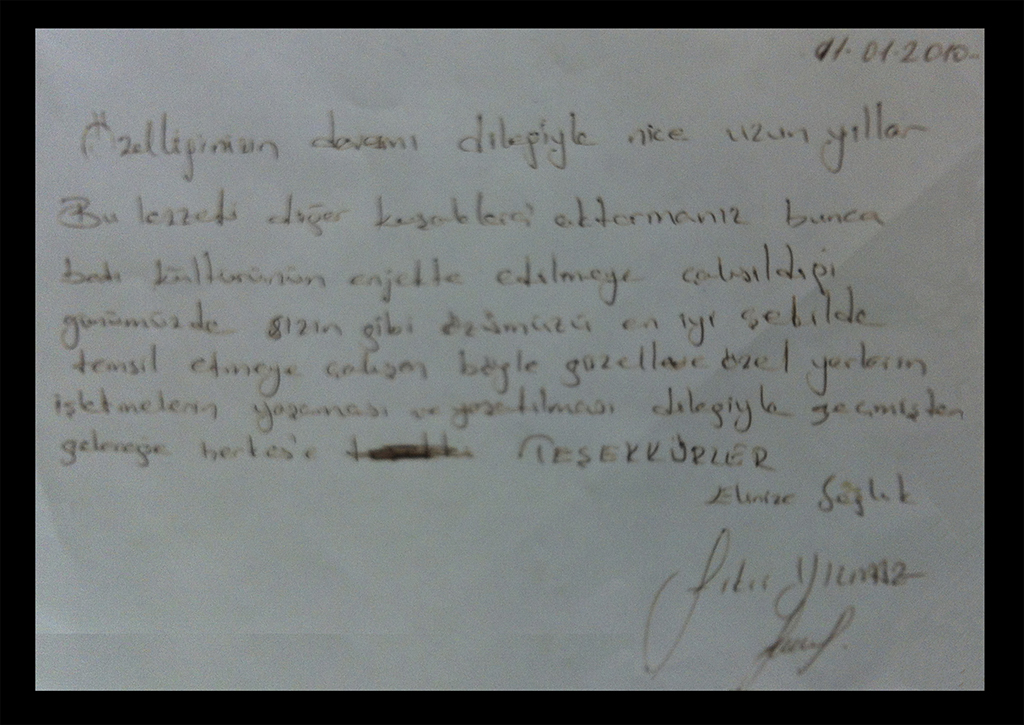 11.01.2010
Özelliğinizin devamı dileğiyle nice uzun yıllar
Bu lezzeti diğer kuşaklara aktarmanız bunca
batı kültürünün enjekte edilmeye çalışıldığı
günümüzde sizin gibi özümüzü en iyi şekilde
temsil etmeye çalışan böyle güzel ve özel yerlerin
işletmelerin yaşaması ve yaşatılması dileğiyle geçmişten
geleceğe herkes'e TEŞEKKÜRLER
Elinize Sağlık
Yılmaz